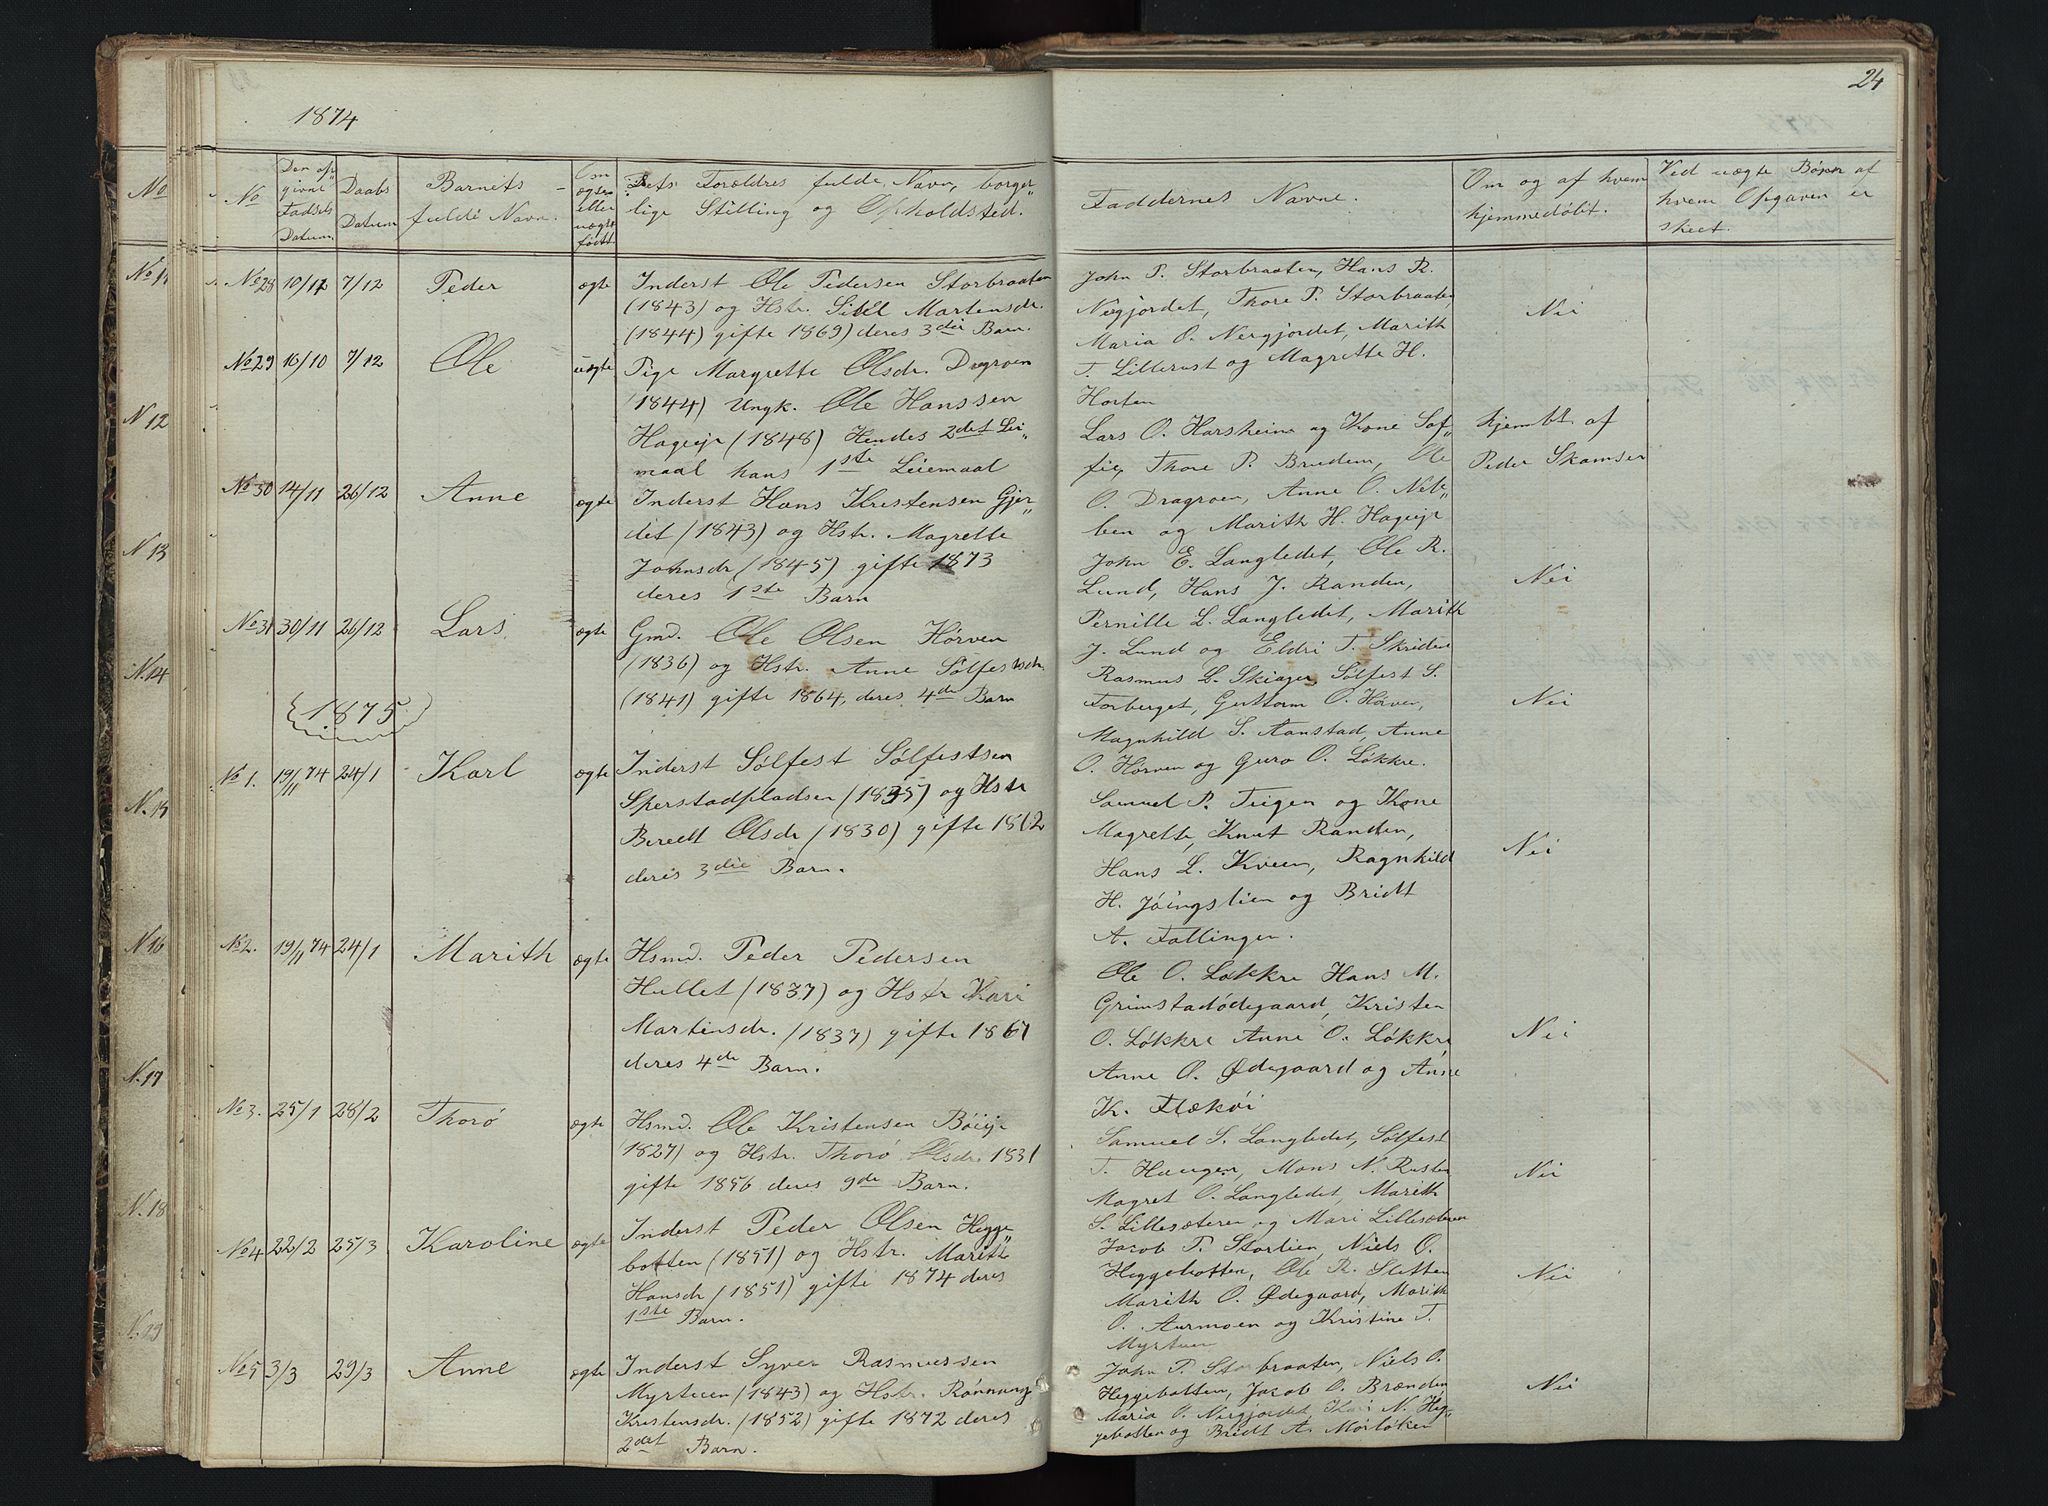 1874
24
No
No
Den op-
givne
Fødsels
Datum.
Daabs
Datum
Barnets
fulde Navn.
Om
ægte
eller
uægte
født.
Dets Forældres fulde Navn, borger-
lige Stilling og Opholdsted.
Faddernes Navne.
Om og af hvem
hjemmedøbt.
Ved uægte Børn af
hvem Opgaven er
skeet.
No 28 10/12 7/12 Peder ægte
Inderst Ole Pedersen Storbraaten
(1843) og Hstr. Martensdr.
(1844) gifte 1869) deres 3die Barn.
John P. Storbraaten, Hans R.
Nergjordet, Thore P. Storbraaten
Maria O. Nergjordet, Marith
T. Lillerust og Magrette H.
Horten
Nei
No 29 16/10 7/12 Ole uægte
Pige Margrette Olsdr. Dragroen
(1844) Ungk. Ole Hanssen
Hageje (1848) Hendes 2det Lei-
maal hans 1ste Leiemaal
Lars O. Harsheim og Kone Sof-
fie, Thore P. Bruden, Ole
O. Dragroen, Anne O. Neb-
ben og Marith H. Hageje
hjembt. af
Peder Skamsar
No 30 14/11 26/12 Anne ægte
Inderst Hans Kristensen Gjer-
det (1843) og Hstr. Magrette
Johnsdr (1845) gifte 1873
deres 1ste Barn
John E. Langledet, Ole R.
Lund, Hans J. Randen,
Pernille L. Langledet, Marith
J. Lund og Eldri T. Skriden
Nei
No 31 30/11 26/12 Lars ægte
Gmd. Ole Olsen Hørven
(1836) og Hstr. Anne Sølfestsdr.
(1841) gifte 1864, deres 4de Barn
Rasmus L. Skiager Sølfest S.
Forberget, Guttorm O. Hørven,
Magnhild S. Aanstad, Anne
O. Hørven og Guro O. Løkkre.
Nei
1875
No 1. 19/11 74 24/1 Karl ægte
Inderst Sølfest Sølfestsen
Sperstadpladsen (1835) og Hstr
Beredt Olsdr (1830) gifte 1862
deres 3die Barn.
Samuel P. Teigen og Kone
Magrette, Knut Randen,
Hans L. Kveen, Ragnhild
H. Jøingslien og Bridt
A. Fallingen.
Nei
No 2. 19/11 74 24/1 Marith ægte
Hsmd. Peder Pedersen
Hullet (1837) og Hstr Kari
Martinsdr. (1837) gifte 1861
deres 4de Barn.
Ole O. Løkkre Hans M.
Grimstadødegaard, Kristen
O. Løkkre Anne O. Løkkre,
Anne O. Ødegaard og Anne
K. Flækøi
Nei
No 3. 25/1 28/2 Thorø ægte
Hsmd. Ole Kristensen Bøieje
(1827) og Hstr. Thorø Olsdr. 1831
gifte 1856 deres 9de Barn.
Samuel S. Langledet, Sølfest
T. Haugen, Mons N. Rusten
Magret O. Langledet, Marith
S. Lillesæteren og Mari Lillesæteren
Nei
No 4 22/2 25/3 Karoline ægte
Inderst Peder Olsen Hegge-
botten (1851) og Hstr. Marith
Hansdr (1851) gifte 1874 deres
1ste Barn.
Jacob T. Storlien, Niels O.
Heggebotten, Ole R. Sletten
Marith O. Ødegaard, Marith
O. Aurmoen og Kristine T.
Myrtuen
Nei
No 5 3/3 29/3 Anne ægte
Inderst Syver Rasmussen
Myrteuen (1843) og Hstr. Rønnaug
Kristensdr. (1852) gifte 1872 deres
2det Barn.
John P. Storbraaten, Niels O.
Heggebotten, Jacob O. Brænden
Maria O. Nergjordet Kari N. Heg-
gebotten og Bridt A. Mørløken
Nei
N 12
N 13
N. 14
N. 15
N 16
N. 17
N. 18
N. 19